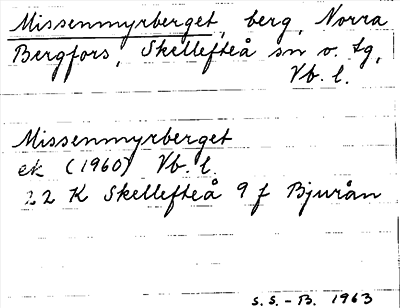 Missenmyrberget, berg, Norra
Bergfors, Skellefteå sn o. tg,
Vb. l.
Missenmyrberget
ek (1960) Vb. l.
22 K Skellefteå 9 f Bjurån
S. S. - B. 1963